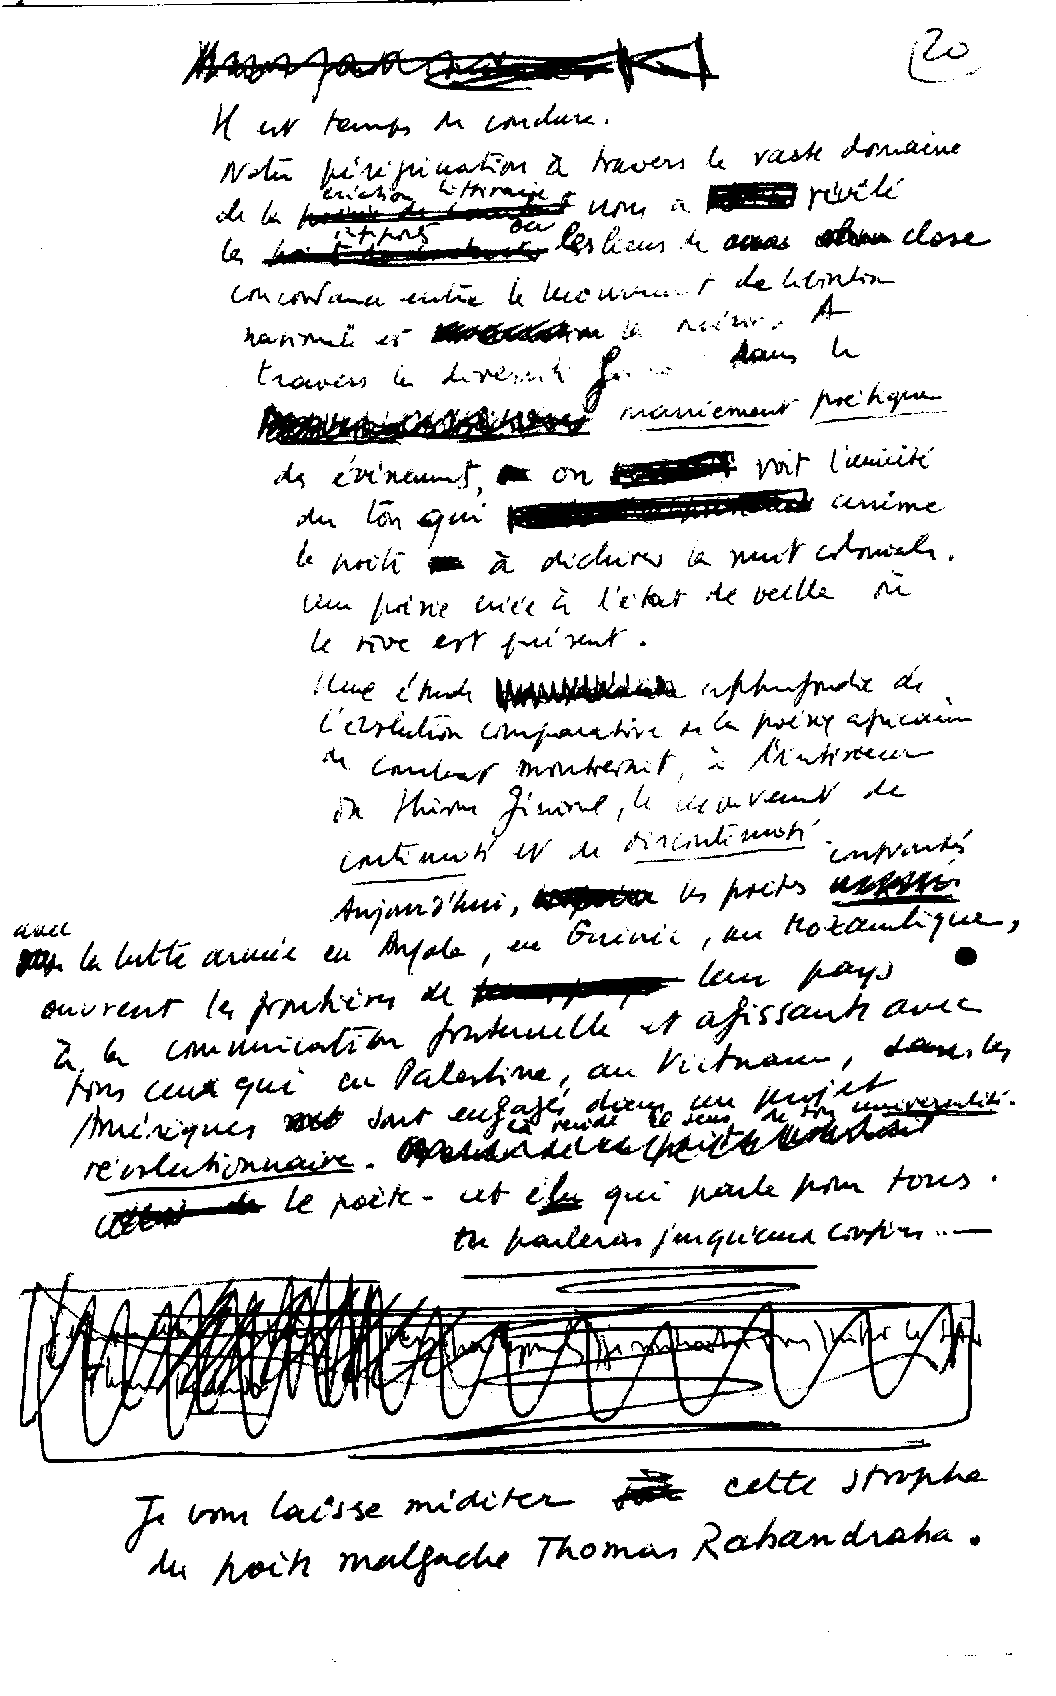 20
Il est temps de conclure.
Notre pérégrination à travers le vaste domaine
de la création littéraire nous a révélé
les rapports ou les lieux de close
concordance entre le mouvement de libération
nationale et la . A
travers la diversité dans le
maniement poétique
des événements, on voit l'unicité
du ton qui anime
le poète à déchirer la nuit coloniale.
Une poésie créée à l'état de veille où
le rêve est présent.
Une étude approfondie de
l'évolution comparative de la poésie africaine
de combat montrerait, à l'intérieur
du thème général, le mouvement de
continuité et de discontinuité.
Aujourd'hui, les poètes confrontés
avec la lutte armée en Angola, en Guinée, au Mozambique,
ouvrent les frontières de leur pays
à la communication fraternelle et agissante avec
tous ceux qui en Palestine, au Vietnam, dans les
Amériques sont engagés dans un projet
révolutionnaire. le sens de son universalité.
le poète - cet élu qui parle pour tous.
tu parleras jusqu'aux confins...
Je vous laisse méditer cette strophe
du poète malgache Thomas Rahandraha.